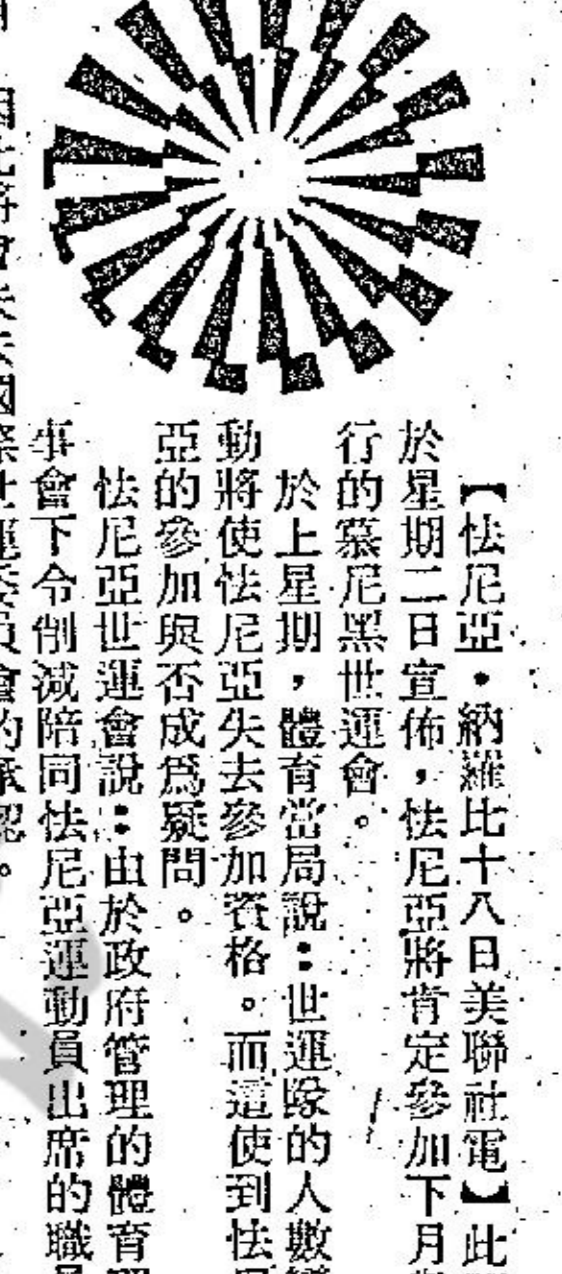 【怯尼亞·納羅比十八日美聯社電】此
於星期二日宣佈，怯尼亞將肯定參加下月
行的慕尼黑世運會。
於上星期，體育當局說：世運隊的人數
動將使怯尼亞失去參加資格。而這使到怯
亞的參加與否成爲疑問。
怯尼亞世運會說：由於政府管理的體育
事會下令削減陪同怯尼亞運動員出席的職
因此將會失去國際世運委員會的承認。